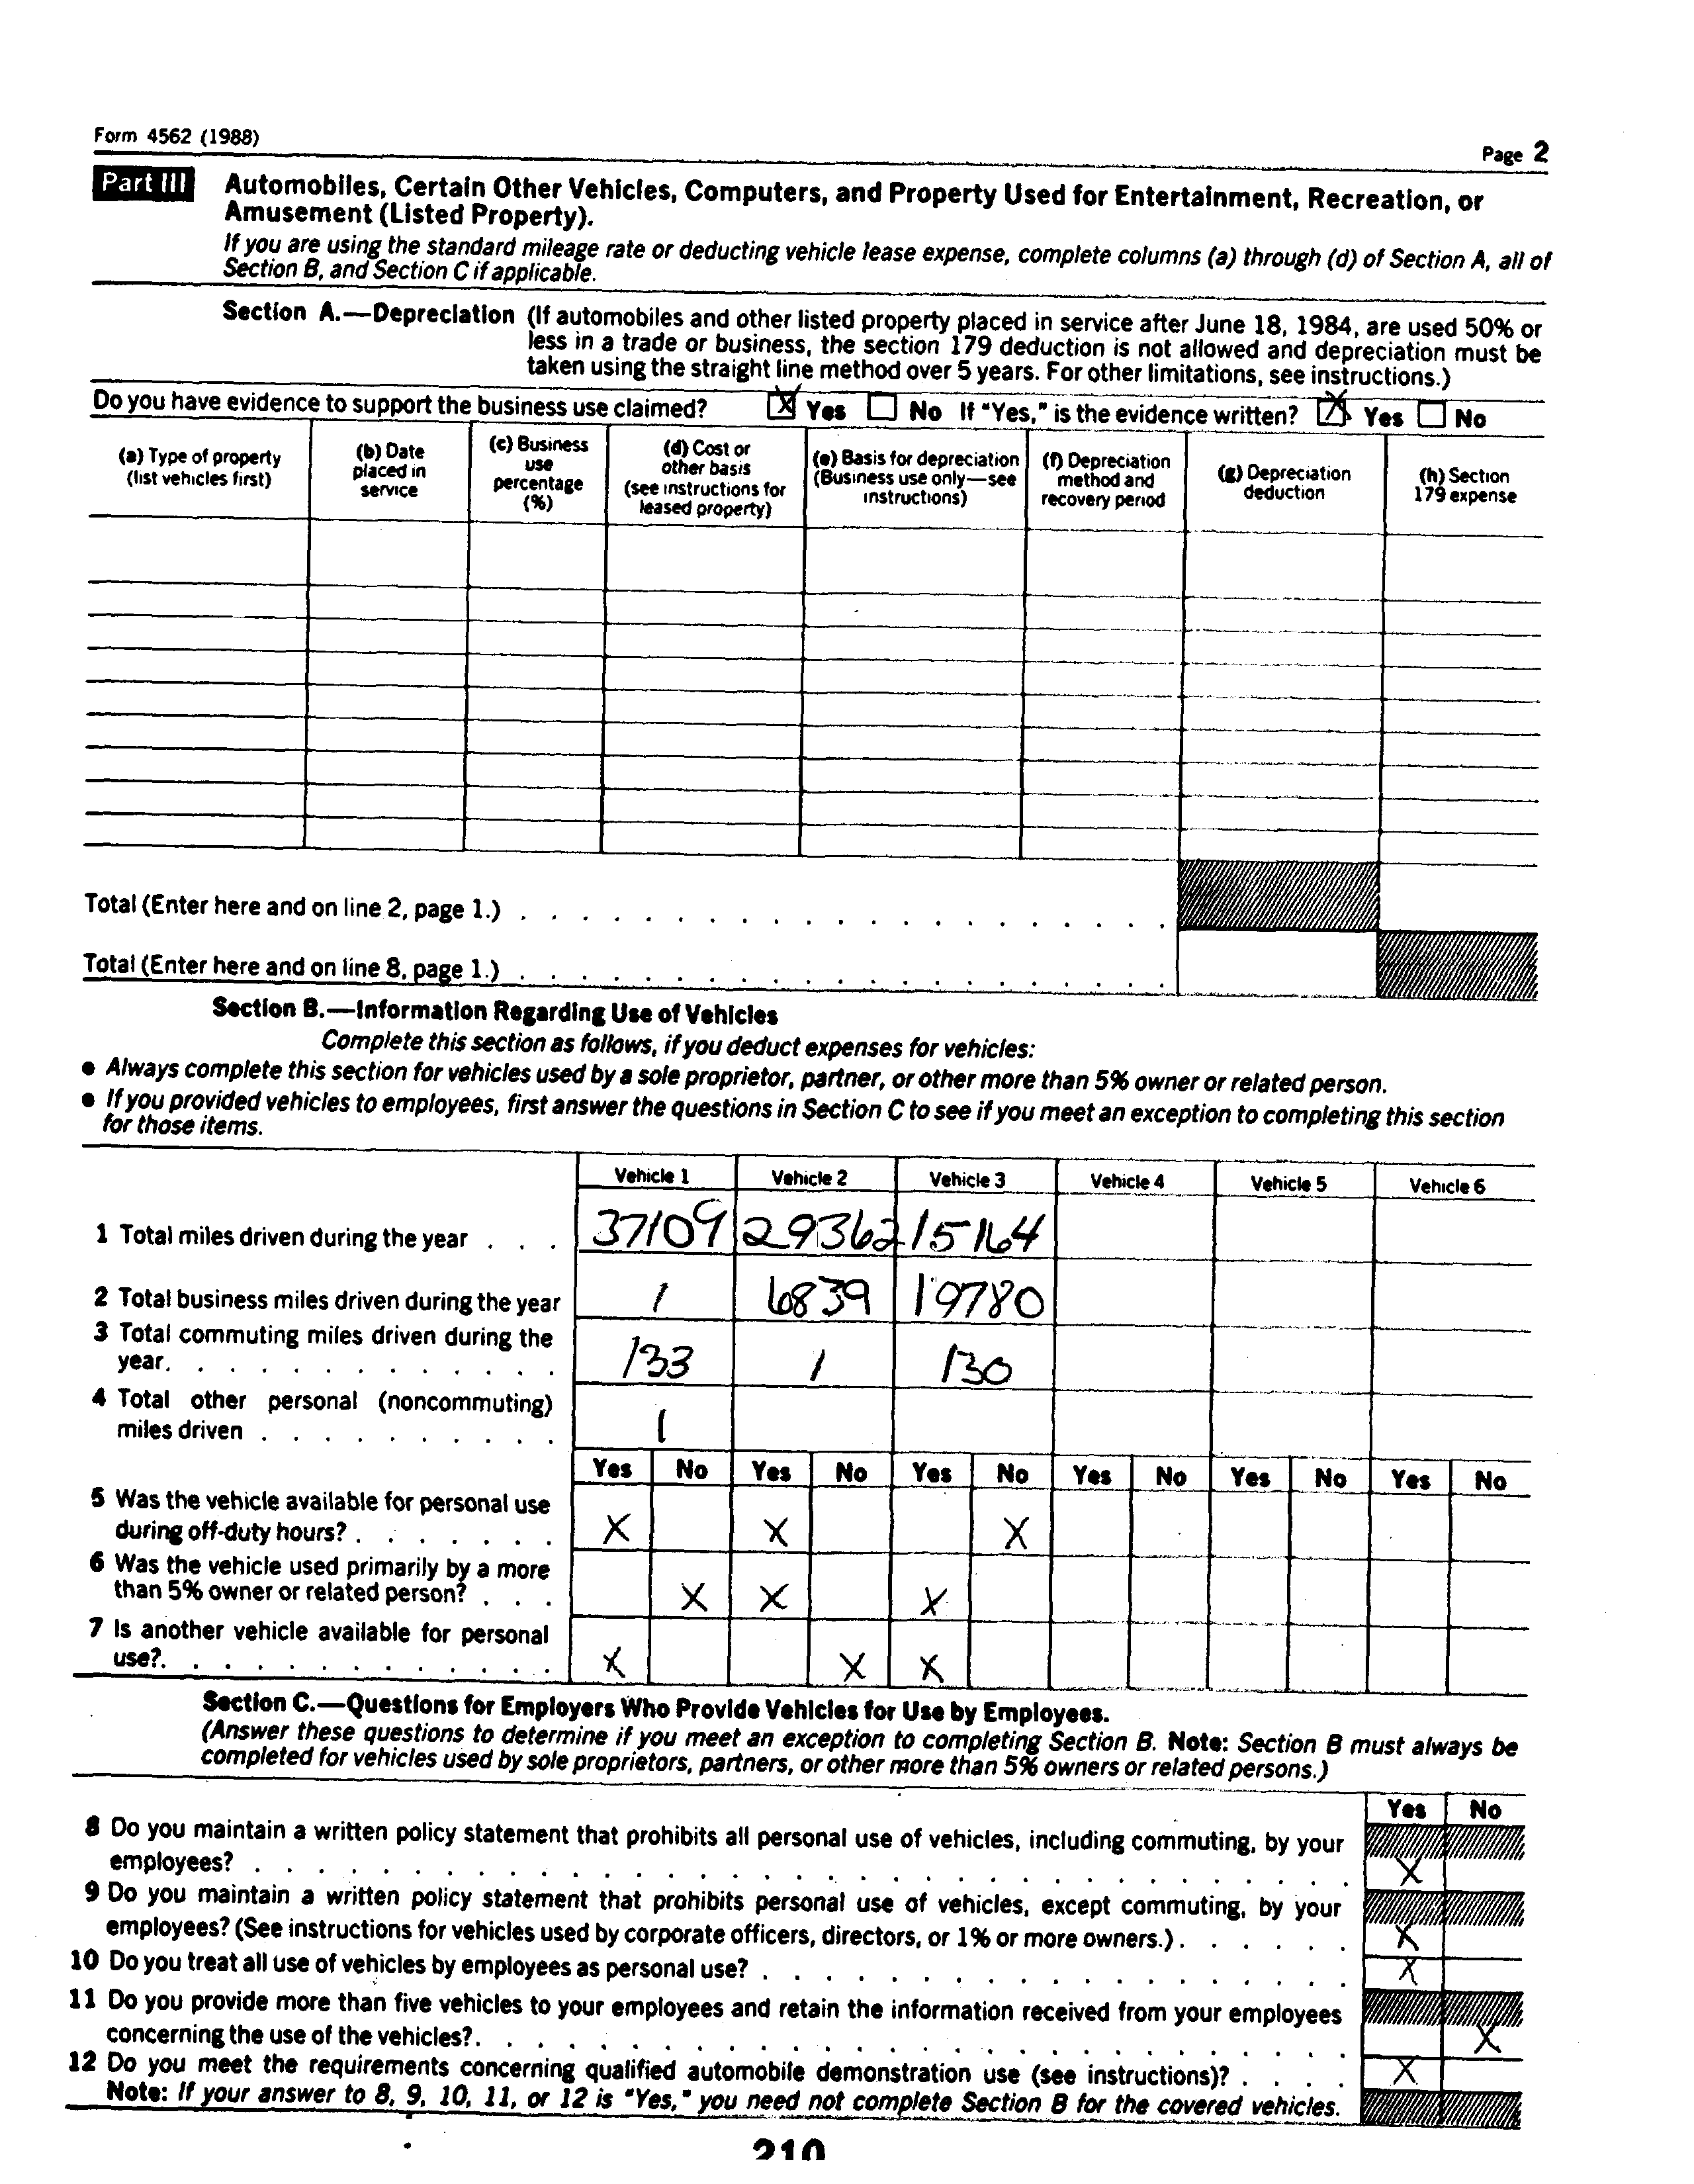 Form 4562 (1988)
Page 2
Part III Automobiles, Certain Other Vehicles, Computers, and Property Used for Entertainment, Recreation, or
Amusement (Listed Property).
If you are using the standard mileage rate or deducting vehicle lease expense, complete columns (a) through (d) of Section A, all of
Section B, and Section C if applicable.
Section A.—Depreciation (If automobiles and other listed property placed in service after June 18, 1984, are used 50% or
less in a trade or business, the section 179 deduction is not allowed and depreciation must be
taken using the straight line method over 5 years. For other limitations, see instructions.)
Do you have evidence to support the business use claimed? X Yes No If "Yes," is the evidence written? X Yes No
(a) Type of property
(list vehicles first)
(b) Date
placed in
service
(c) Business
use
percentage
(%)
(d) Cost or
other basis
(see instructions for
leased property)
(e) Basis for depreciation
(Business use only—see
instructions)
(f) Depreciation
method and
recovery period
(g) Depreciation
deduction
(h) Section
179 expense
Total (Enter here and on line 2, page 1.) . . . . . . . . . . . . . . . . . . . . .
Total (Enter here and on line 8, page 1.) . . . . . . . . . . . . . . . . . . . . .
Section B.—Information Regarding Use of Vehicles
Complete this section as follows, if you deduct expenses for vehicles:
● Always complete this section for vehicles used by a sole proprietor, partner, or other more than 5% owner or related person.
● If you provided vehicles to employees, first answer the questions in Section C to see if you meet an exception to completing this section
for those items.
Vehicle 1 Vehicle 2 Vehicle 3 Vehicle 4 Vehicle 5 Vehicle 6
1 Total miles driven during the year . . . 37109 29362 15164
2 Total business miles driven during the year 1 6839 19780
3 Total commuting miles driven during the
year. . . . . . . . . . . . . 133 1 130
4 Total other personal (noncommuting)
miles driven . . . . . . . . . . 1
Yes No Yes No Yes No Yes No Yes No Yes No
5 Was the vehicle available for personal use
during off-duty hours? . . . . . . . X X X
6 Was the vehicle used primarily by a more
than 5% owner or related person? . . . X X X
7 Is another vehicle available for personal
use?. . . . . . . . . . . . . X X X
Section C.—Questions for Employers Who Provide Vehicles for Use by Employees.
(Answer these questions to determine if you meet an exception to completing Section B. Note: Section B must always be
completed for vehicles used by sole proprietors, partners, or other more than 5% owners or related persons.)
Yes No
8 Do you maintain a written policy statement that prohibits all personal use of vehicles, including commuting, by your
employees? . . . . . . . . . . . . . . . . . . . . . . . . . . . . . . . . . . . X
9 Do you maintain a written policy statement that prohibits personal use of vehicles, except commuting, by your
employees? (See instructions for vehicles used by corporate officers, directors, or 1% or more owners.) . . . . . . X
10 Do you treat all use of vehicles by employees as personal use? . . . . . . . . . . . . . . . . . . . X
11 Do you provide more than five vehicles to your employees and retain the information received from your employees
concerning the use of the vehicles?. . . . . . . . . . . . . . . . . . . . . . . . . . . . X
12 Do you meet the requirements concerning qualified automobile demonstration use (see instructions)? . . . . X
Note: If your answer to 8, 9, 10, 11, or 12 is "Yes," you need not complete Section B for the covered vehicles.
210